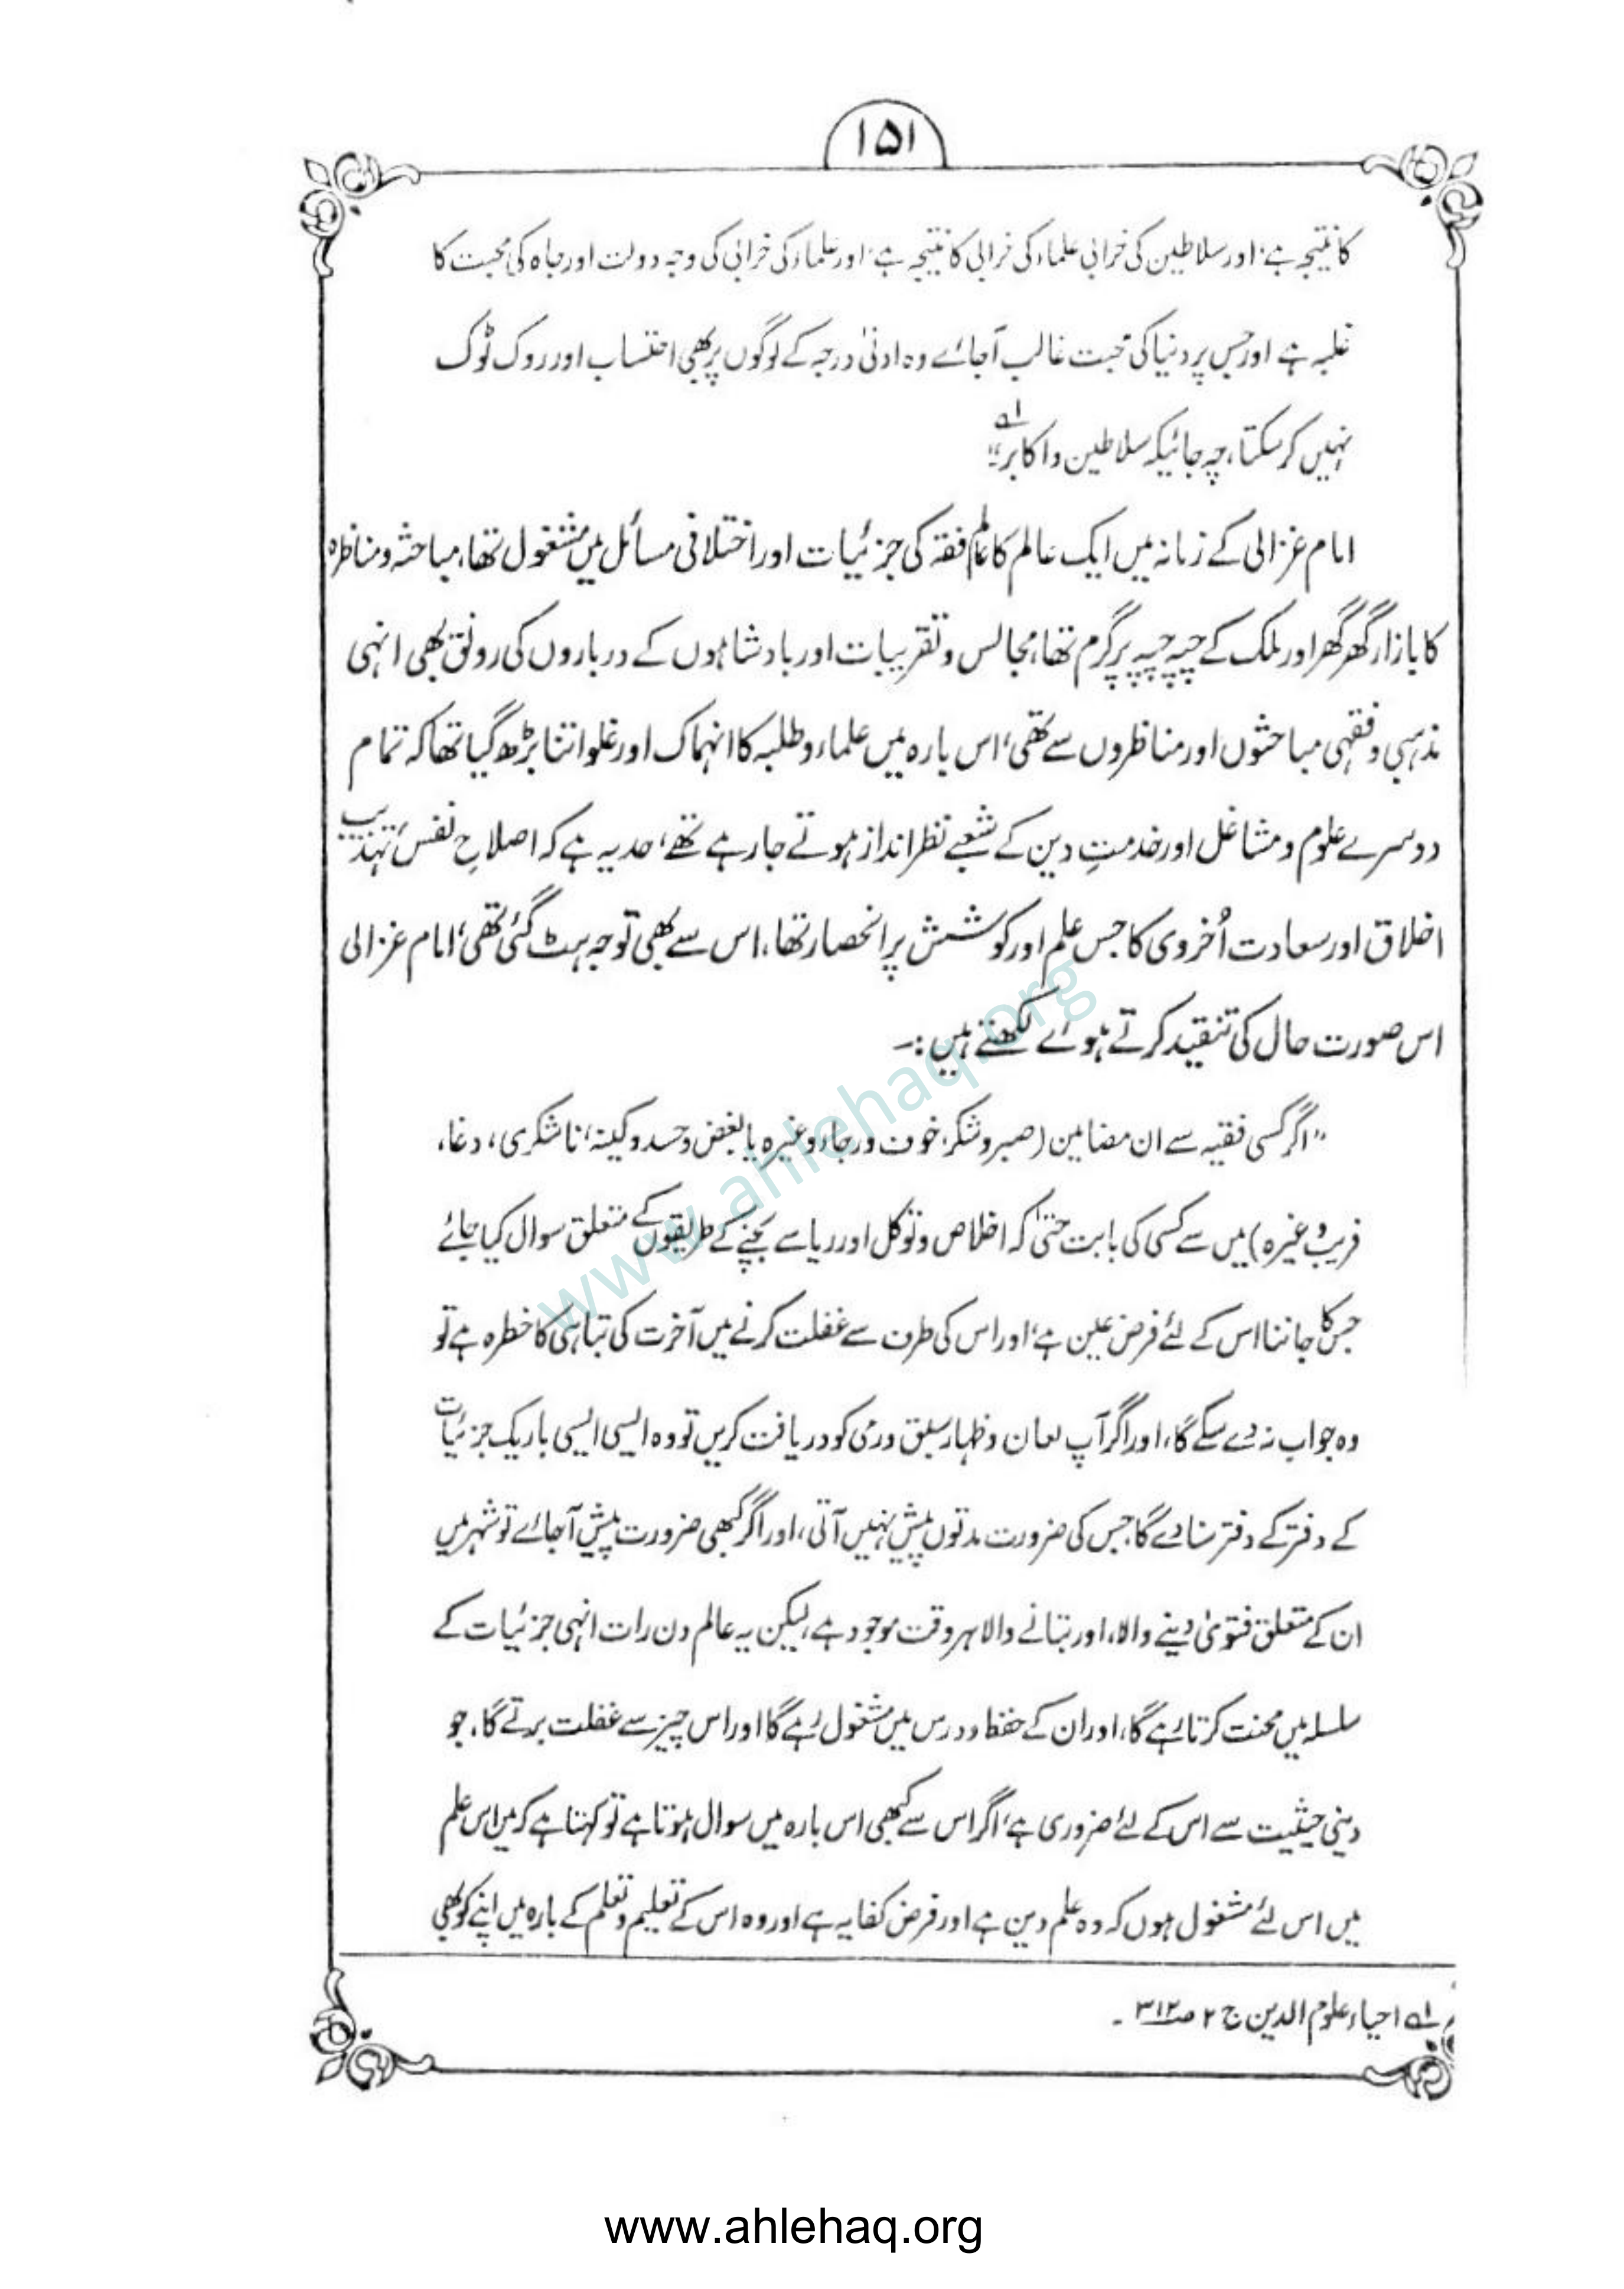 ۱۵۱
کا نتیجہ ہے، اور سلاطین کی خرابی علماء کی خرابی کا نتیجہ ہے، اور علماء کی خرابی کی وجہ دولت اور جاہ کی محبت کا
غلبہ ہے اور جس پر دنیا کی محبت غالب آجائے وہ ادنیٰ درجہ کے لوگوں پر بھی احتساب اور روک ٹوک
نہیں کر سکتا، چہ جائیکہ سلاطین و اکابر۔" ۱ے
امام غزالی کے زمانہ میں ایک عالم کا عالم فقہ کی جزئیات اور اختلافی مسائل میں مشغول تھا، مباحثہ و مناظرہ
کا بازار گھر گھر اور ملک کے چپہ چپہ پر گرم تھا، مجالس و تقریبات اور بادشاہوں کے درباروں کی رونق بھی انہی
مذہبی و فقہی مباحثوں اور مناظروں سے تھی، اس بارہ میں علماء و طلبہ کا انہماک اور غلو اتنا بڑھ گیا تھا کہ تمام
دوسرے علوم و مشاغل اور خدمتِ دین کے شعبے نظرانداز ہوتے جا رہے تھے، حد یہ ہے کہ اصلاحِ نفس، تہذیب
اخلاق اور سعادت اُخروی کا جس علم اور کوشش پر انحصار تھا، اس سے بھی توجہ ہٹ گئی تھی، امام غزالی
اس صورت حال کی تنقید کرتے ہوئے لکھتے ہیں:۔
"اگر کسی فقیہ سے ان مضامین (صبر و شکر، خوف و رجاء وغیرہ یا بغض و حسد و کینہ، ناشکری، دغا،
فریب وغیرہ) میں سے کسی کی بابت حتیٰ کہ اخلاص و توکل اور ریا سے بچنے کے طریقوں کے متعلق سوال کیا جائے
جس کا جاننا اس کے لئے فرض عین ہے، اور اس کی طرف سے غفلت کرنے میں آخرت کی تباہی کا خطرہ ہے تو
وہ جواب نہ دے سکے گا، اور اگر آپ لعان و ظہار سبق و رمی کو دریافت کریں تو وہ ایسی ایسی باریک جزئیات
کے دفتر کے دفتر سنا دے گا، جس کی ضرورت مدتوں پیش نہیں آتی، اور اگر کبھی ضرورت پیش آجائے تو شہر میں
ان کے متعلق فتویٰ دینے والا، اور بتانے والا ہر وقت موجود ہے، لیکن یہ عالم دن رات انہی جزئیات کے
سلسلہ میں محنت کرتا رہے گا، اور ان کے حفظ و درس میں مشغول رہے گا اور اس چیز سے غفلت برتے گا، جو
دینی حیثیت سے اس کے لئے ضروری ہے، اگر اس سے کبھی اس بارہ میں سوال ہوتا ہے تو کہتا ہے کہ میں اس علم
میں اس لئے مشغول ہوں کہ وہ علم دین ہے اور فرض کفایہ ہے اور وہ اس کے تعلیم و تعلم کے بارہ میں اپنے کو بھی
۱ے احیاء علوم الدین ج ۲ ص۳۱۲۔
www.ahlehaq.org
www.ahlehaq.org